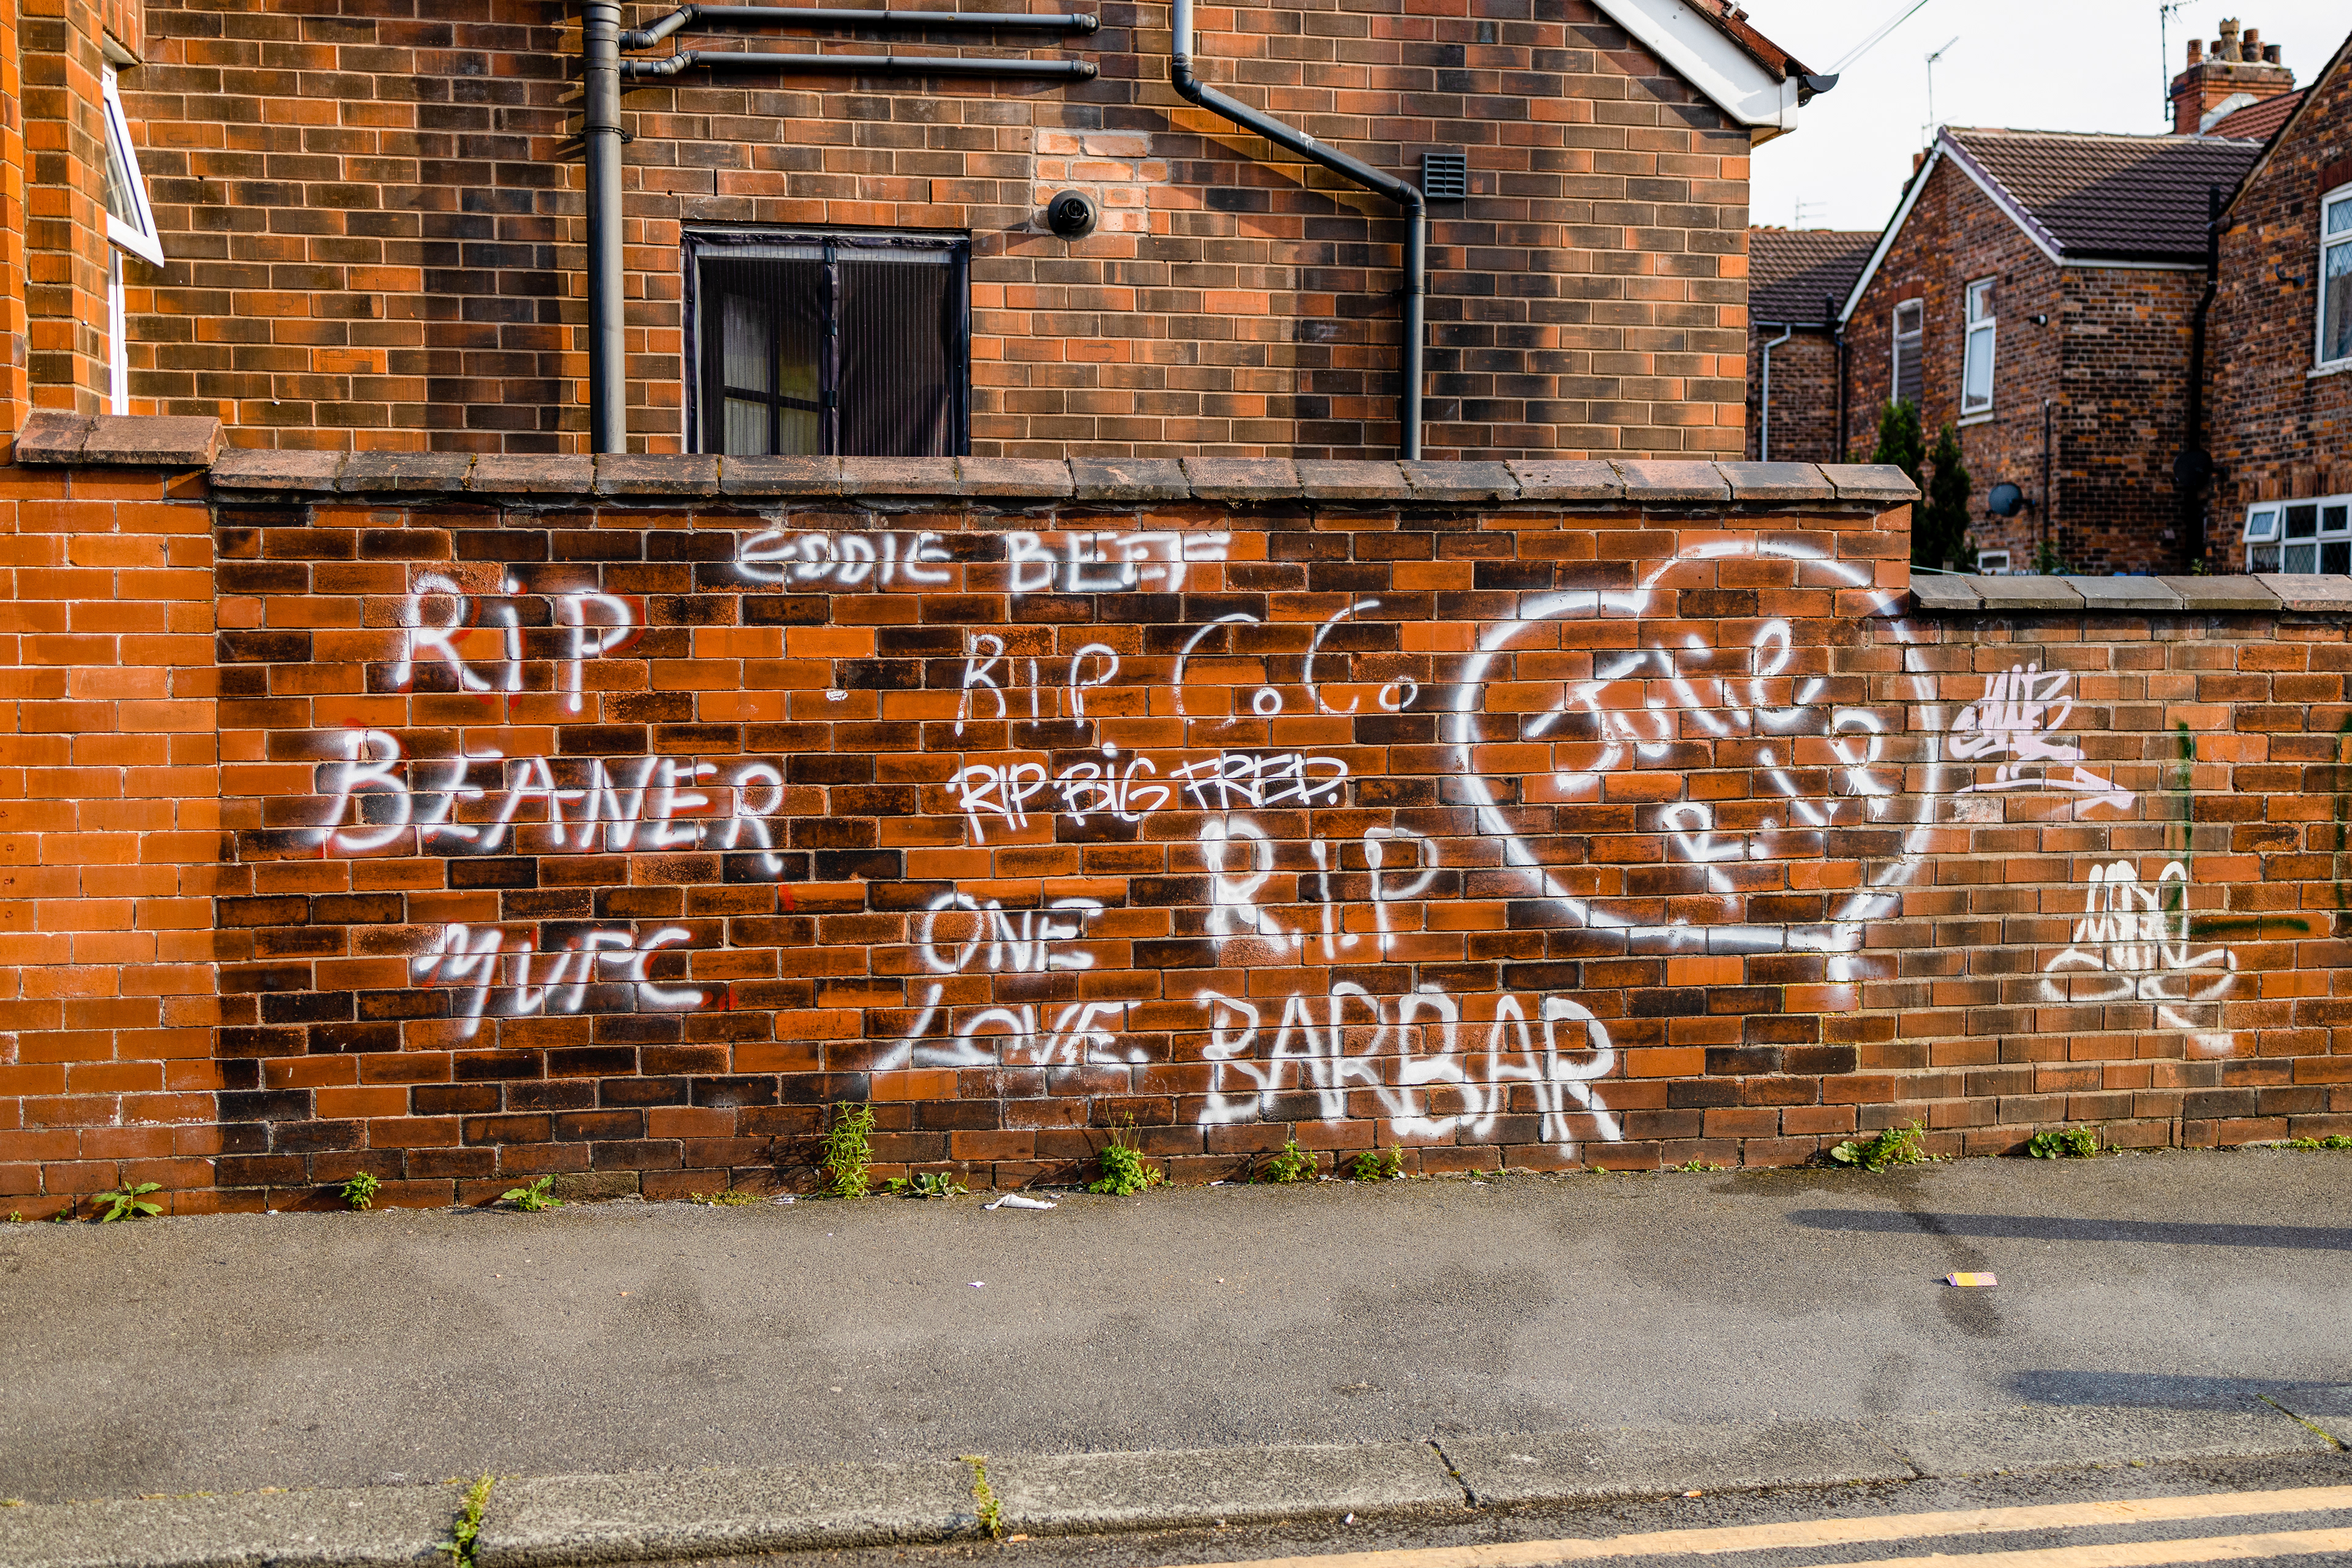 EDDIE BEEF
RiP
BEANER
MUFC
RIP CoCo
RIP BiG FRED.
ONE
LOVE.
R.I.P
BARBAR
Jolie
R.I.P